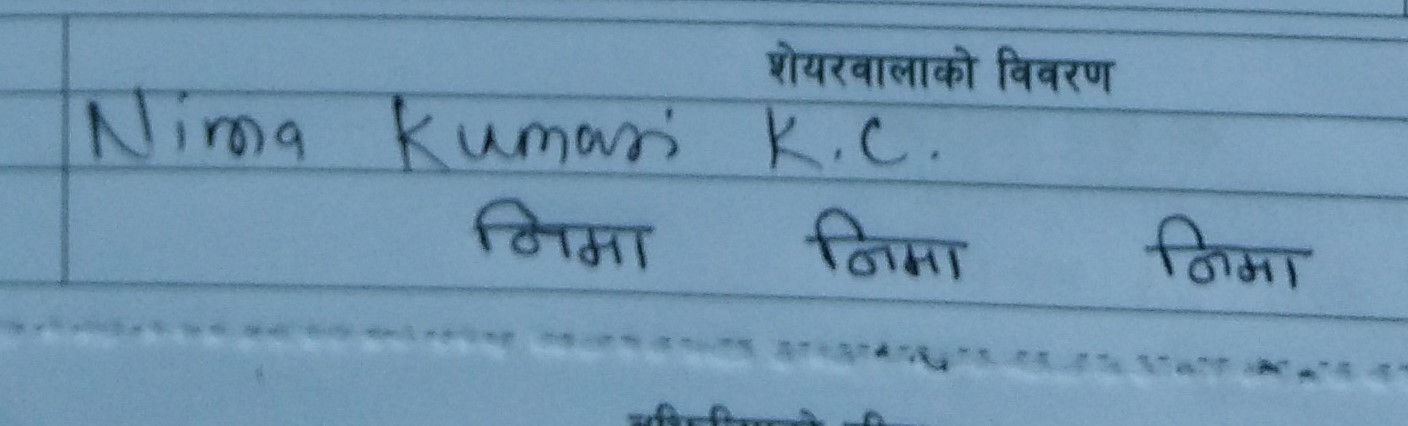 शेयरवालाको विवरण
Nima Kumari K.C.
निमा निमा निमा